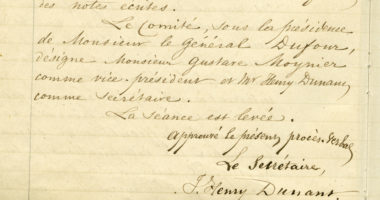 des notes écrites.
Le Comité, sous la présidence
de Monsieur le Général Dufour,
désigne Monsieur Gustave Moynier
comme vice président et Mr Henry Dunant
comme secrétaire.
La séance est levée.
approuvé le présent procès verbal
Le Secrétaire,
J. Henry Dunant.